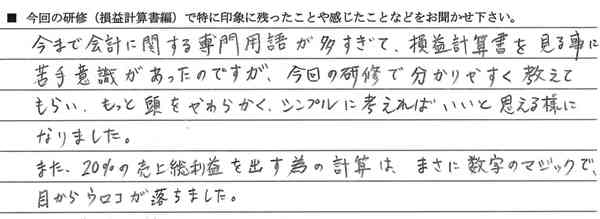 ■ 今回の研修（損益計算書編）で特に印象に残ったことや感じたことなどをお聞かせ下さい。
今まで会計に関する専門用語が多すぎて、損益計算書を見る事に
苦手意識があったのですが、今回の研修で分かりやすく教えて
もらい、もっと頭をやわらかく、シンプルに考えればいいと思える様に
なりました。
また、20%の売上総利益を出す為の計算は、まさに数字のマジックで、
目からウロコが落ちました。